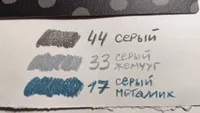 44 серый
33 серый
жемчуг
17 серый
металик